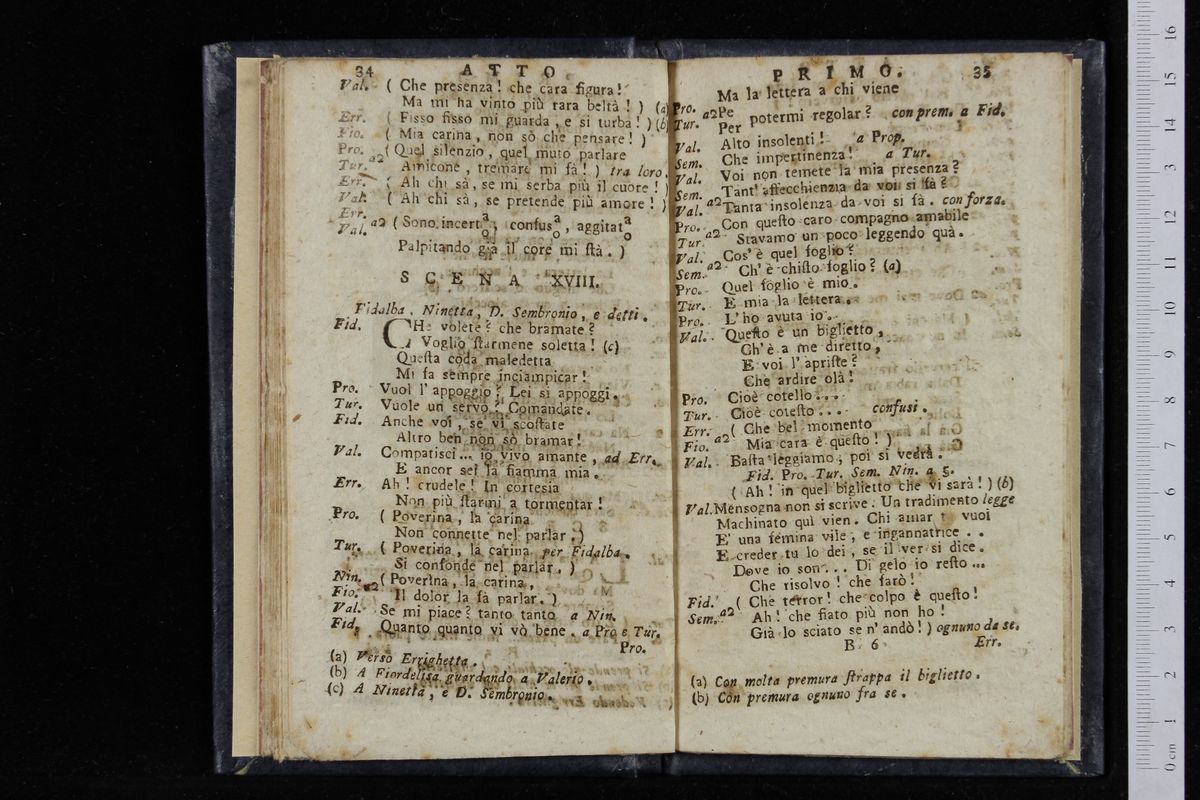 34 ATTO
Val. ( Che presenza! che cara figura!
Ma mi ha vinto più rara beltà! ) (a)
Err. ( Fisso fisso mi guarda, e si turba! ) (b)
Fio. ( Mia carina, non sò che pensare! )
Pro. ( Quel silenzio, quel muto parlare
Tur. a2 Amicone, tremare mi fà! ) tra loro.
Err. ( Ah chi sà, se mi serba più il cuore! )
Val. ( Ah chi sà, se pretende più amore! )
Err.
Val. a2 ( Sono incerta/o, confusa/o, aggitata/o
Palpitando già il core mi ſtà. )
SCENA XVIII.
Fidalba, Ninetta, D. Sembronio, e detti.
Fid. CHe volete? che bramate?
Voglio ſtarmene soletta! (c)
Queſta coda maledetta
Mi fa sempre inciampicar!
Pro. Vuol l'appoggio? Lei si appoggi.
Tur. Vuole un servo? Comandate.
Fid. Anche voi, se vi scoſtate
Altro ben non sò bramar!
Val. Compatisci... io vivo amante, ad Err.
E ancor sei la fiamma mia.
Err. Ah! crudele! In cortesia
Non più ſtarmi a tormentar!
Pro. ( Poverina, la carina
Non connette nel parlar.)
Tur. ( Poverina, la carina per Fidalba.
Si confonde nel parlar. )
Nin. a2 ( Poverina, la carina,
Fio. Il dolor la fà parlar. )
Val. Se mi piace? tanto tanto a Nin.
Fid. Quanto quanto vi vò bene. a Pro e Tur.
Pro.
(a) Verso Errighetta.
(b) A Fiordelisa guardando a Valerio.
(c) A Ninetta, e D. Sembronio.
PRIMO. 35
Ma la lettera a chi viene
Pro. a2 Pe
Tur. Per potermi regolar? con prem. a Fid.
Val. Alto insolenti! a Prop.
Sem. Che impertinenza! a Tur.
Val. Voi non temete la mia presenza?
Sem. Tant' affecchienzia da voi si fà?
Val. a2 Tanta insolenza da voi si fà. con forza.
Pro. Con queſto caro compagno amabile
Tur. a2 Stavamo un poco leggendo quà.
Val. Cos' è quel foglio?
Sem. a2 Ch' è chiſto foglio? (a)
Pro. Quel foglio è mio.
Tur. E mia la lettera.
Pro. L' ho avuta io.
Val. Queſto è un biglietto,
Ch' è a me diretto,
E voi l' apriſte?
Che ardire olà!
Pro. Cioè cotello...
Tur. Cioè coteſto... confusi.
Err. ( Che bel momento
Fio. a2 Mia cara è queſto! )
Val. Baſta leggiamo, poi si vedrà.
Fid. Pro. Tur. Sem. Nin. a 5.
( Ah! in quel biglietto che vi sarà! ) (b)
Val. Mensogna non si scrive. Un tradimento legge
Machinato quì vien. Chi amar tu vuoi
E' una femina vile, e ingannatrice..
E creder tu lo dei, se il ver si dice.
Dove io son... Di gelo io reſto...
Che risolvo! che farò!
Fid. ( Che terror! che colpo è queſto!
Sem. a2 Ah! che fiato più non ho!
Già lo sciato se n' andò! ) ognuno da se.
B 6 Err.
(a) Con molta premura ſtrappa il biglietto.
(b) Con premura ognuno fra se.
0 cm 1 2 3 4 5 6 7 8 9 10 11 12 13 14 15 16